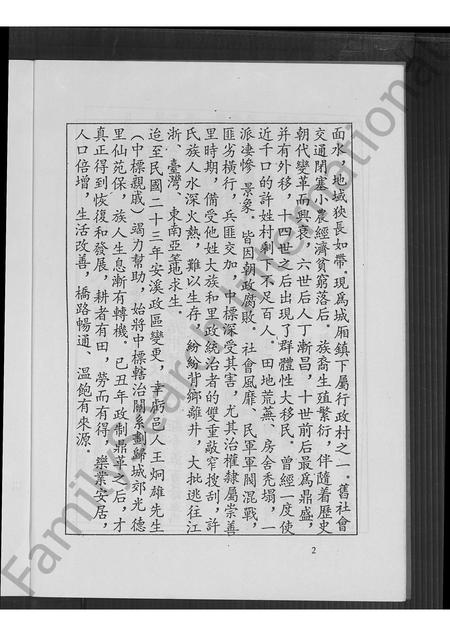 面水，地域狹長如帶。現爲城厢鎮下屬行政村之一。舊社會
交通閉塞小農經濟貧窮落后。族裔生殖繁衍，伴隨着歷史
朝代變革而興衰，六世后人丁漸昌，十世前后最爲鼎盛，
并有外移，十四世之后出現了群體性大移民。曾經一度使
近千口的許姓村剩下不足百人。田地荒蕪、房舍禿塌，一
派凄慘景象。皆因朝政腐敗。社會風靡、民軍軍閥混戰，
匪劣橫行，兵匪交加，中標深受其害，尤其治權隸屬崇善
里時期，備受他姓大族和里政統治者的雙重敲窄搜刮，許
氏族人水深火熱，難以生存，紛紛背鄉離井，大批逃往江
浙、臺灣、東南亞等地求生。
迨至民國二十三年安溪政區變更，幸虧邑人王炯雄先生
（中標親戚）竭力幫助，始將中標轄治關系劃歸城郊光德
里仙苑保，族人生息漸有轉機。已丑年政制鼎革之后，才
真正得到恢復和發展，耕者有田，勞而有得，樂業安居，
人口倍增，生活改善，橋路暢通、溫飽有來源。
2
Family Search International